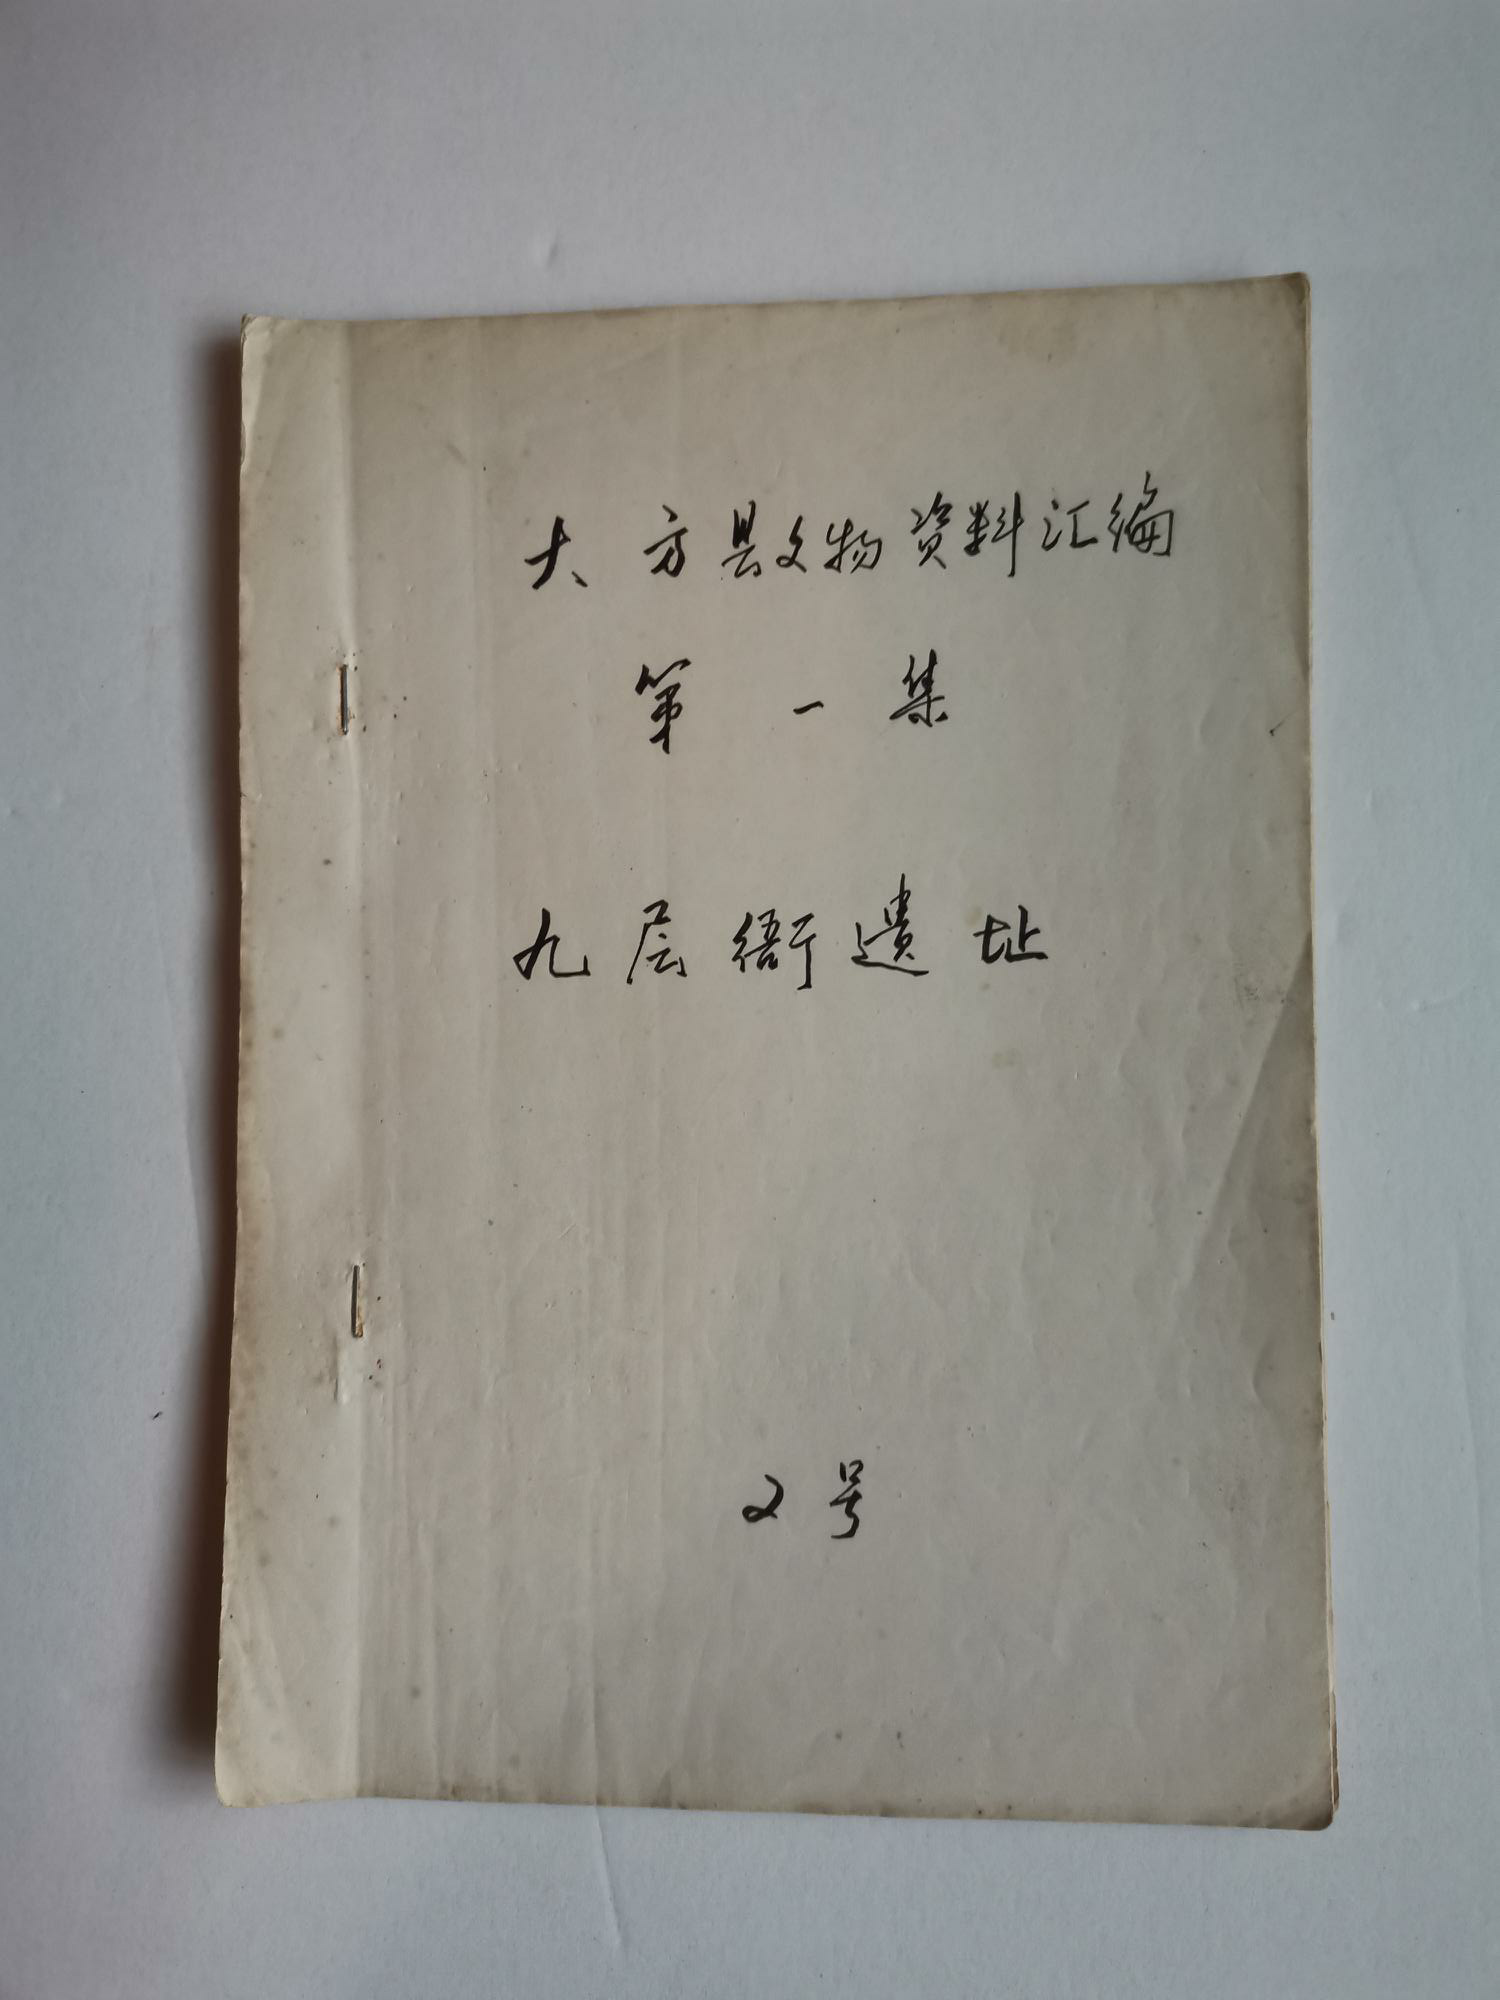 大方县文物资料汇编
第一集
九层衙遗址
2号